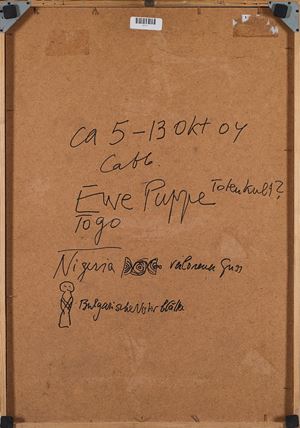 ca 5-13 Okt 04
Cabb.
Ewe Puppe Totenkult?
Togo
Nigeria verlorener Guss
Bulgarische Noten blätter